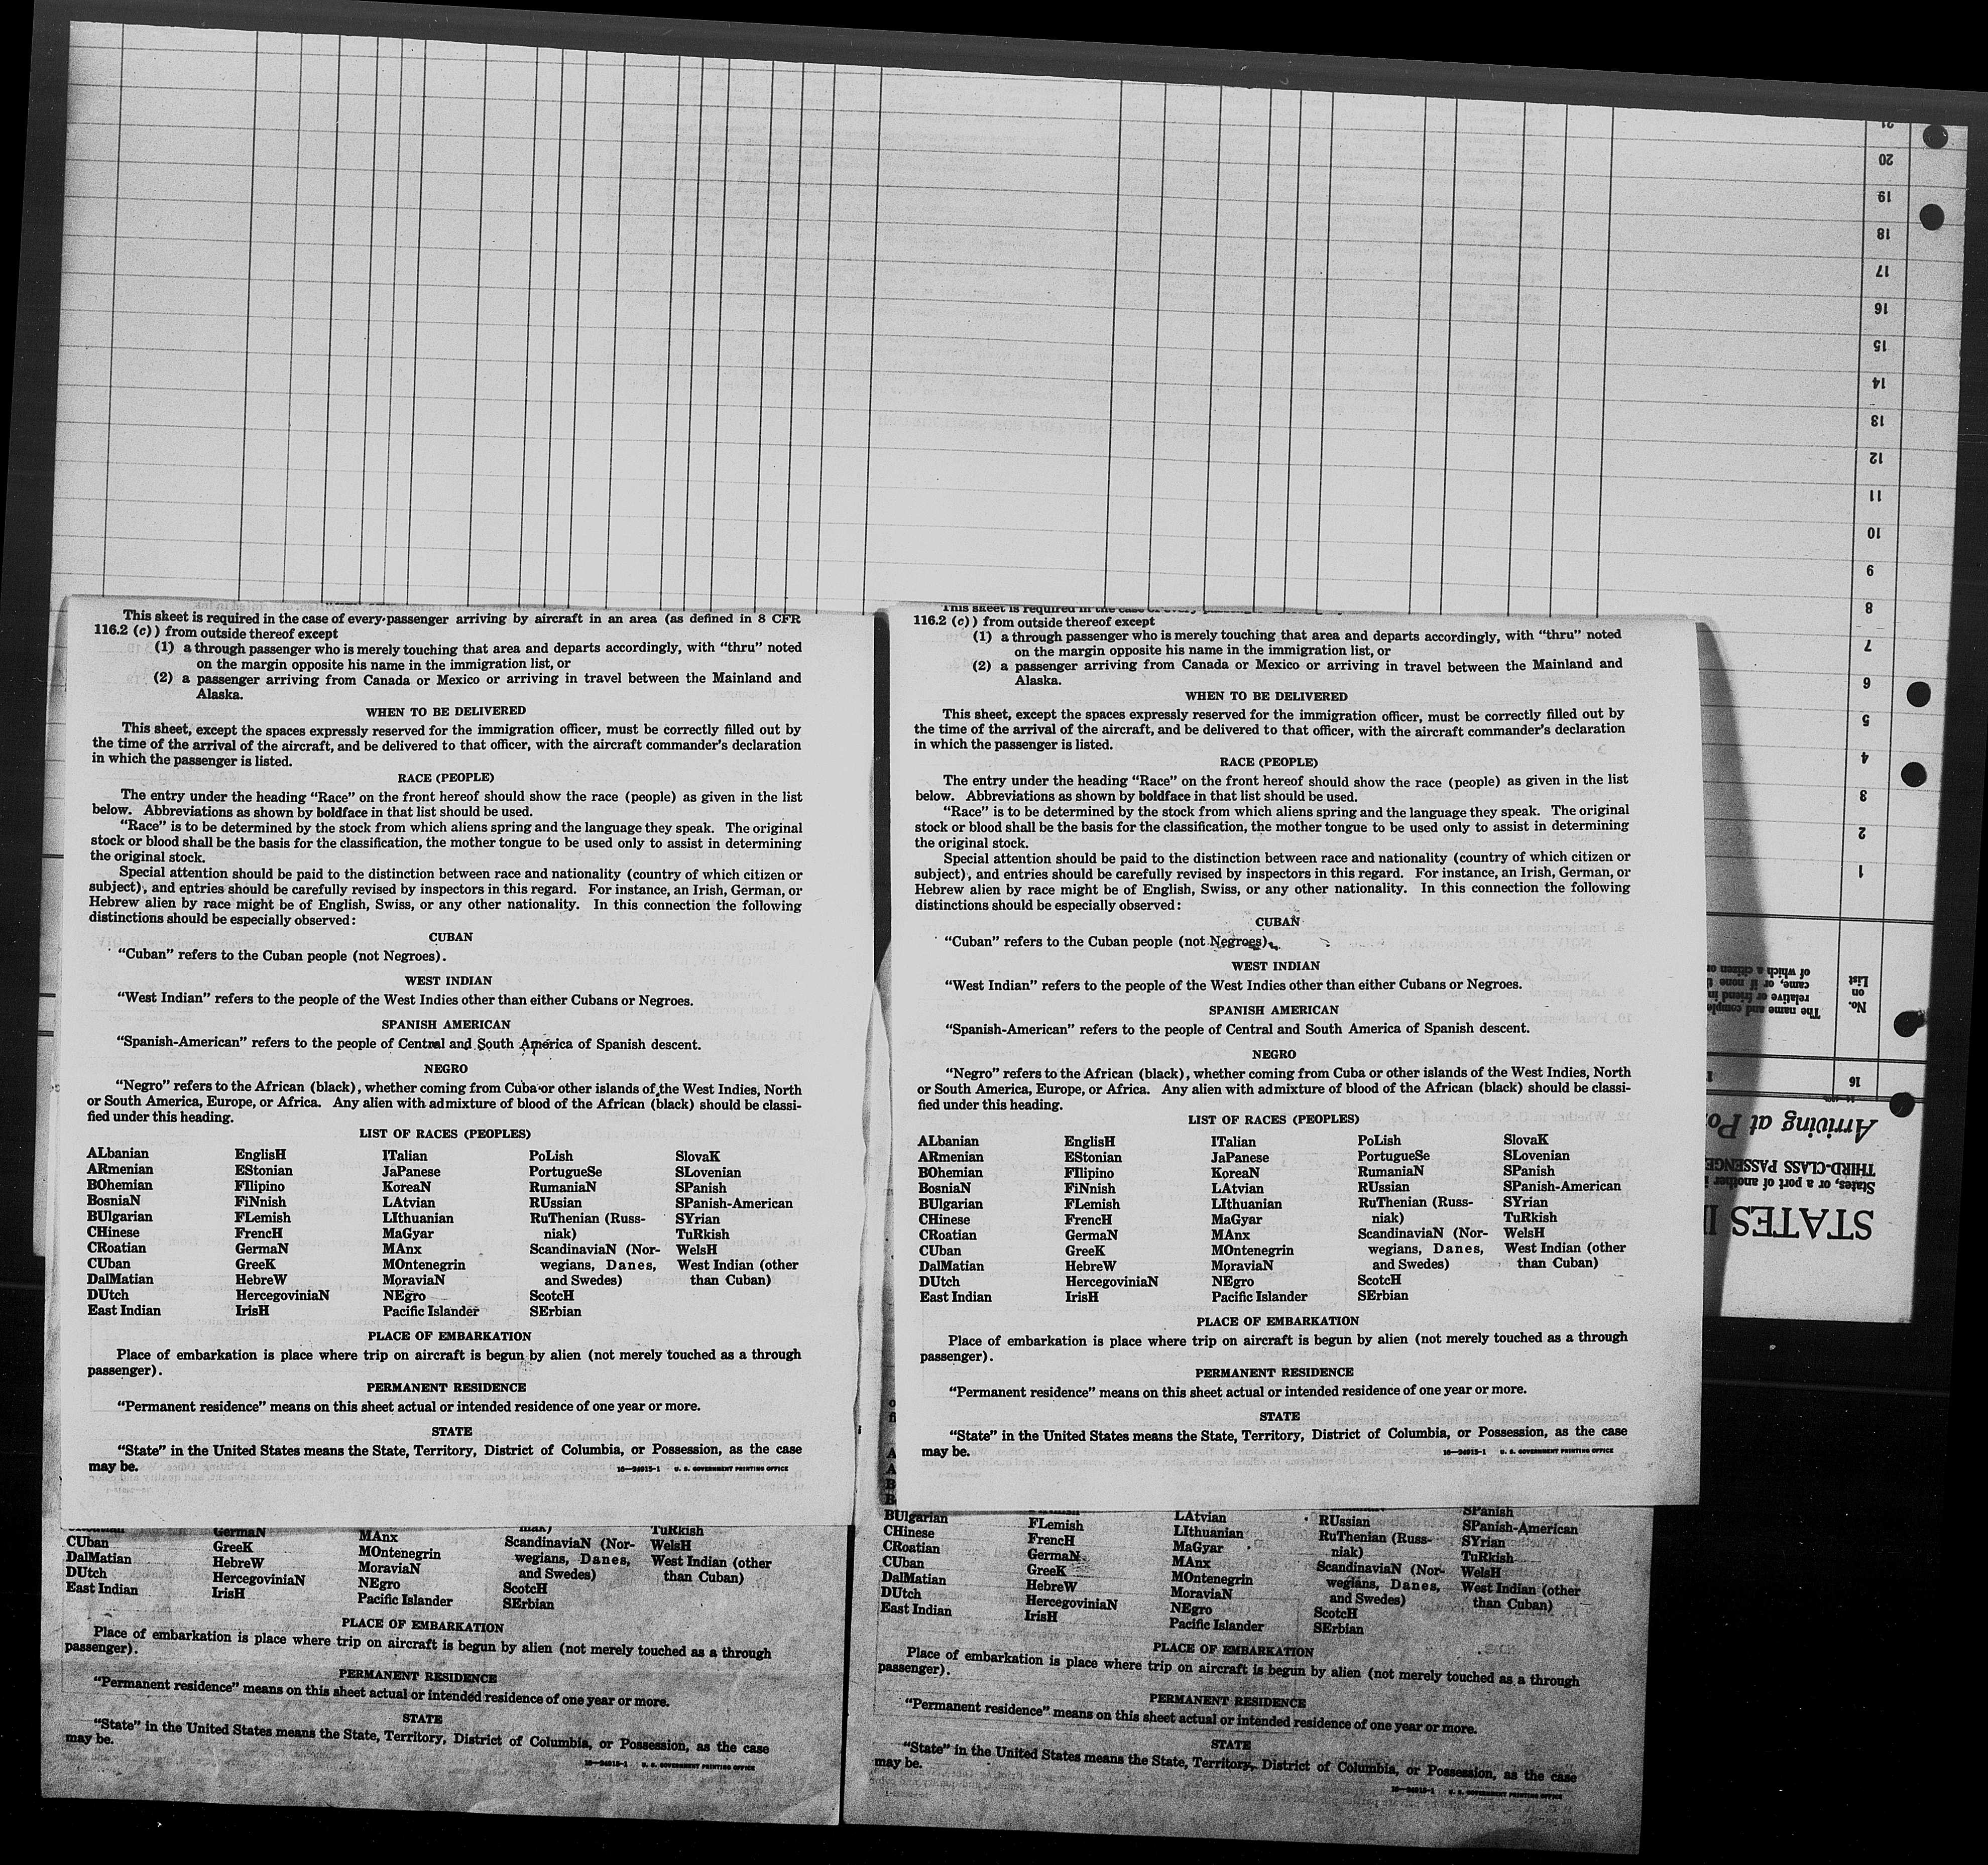 This sheet is required in the case of every passenger arriving by aircraft in an area (as defined in 8 CFR
116.2 (c)) from outside thereof except
(1) a through passenger who is merely touching that area and departs accordingly, with “thru” noted
on the margin opposite his name in the immigration list, or
(2) a passenger arriving from Canada or Mexico or arriving in travel between the Mainland and
Alaska.
WHEN TO BE DELIVERED
This sheet, except the spaces expressly reserved for the immigration officer, must be correctly filled out by
the time of the arrival of the aircraft, and be delivered to that officer, with the aircraft commander’s declaration
in which the passenger is listed.
RACE (PEOPLE)
The entry under the heading “Race” on the front hereof should show the race (people) as given in the list
below. Abbreviations as shown by boldface in that list should be used.
“Race” is to be determined by the stock from which aliens spring and the language they speak. The original
stock or blood shall be the basis for the classification, the mother tongue to be used only to assist in determining
the original stock.
Special attention should be paid to the distinction between race and nationality (country of which citizen or
subject), and entries should be carefully revised by inspectors in this regard. For instance, an Irish, German, or
Hebrew alien by race might be of English, Swiss, or any other nationality. In this connection the following
distinctions should be especially observed:
CUBAN
“Cuban” refers to the Cuban people (not Negroes).
WEST INDIAN
“West Indian” refers to the people of the West Indies other than either Cubans or Negroes.
SPANISH AMERICAN
“Spanish-American” refers to the people of Central and South America of Spanish descent.
NEGRO
“Negro” refers to the African (black), whether coming from Cuba or other islands of the West Indies, North
or South America, Europe, or Africa. Any alien with admixture of blood of the African (black) should be classi-
fied under this heading.
LIST OF RACES (PEOPLES)
ALbanian EnglisH ITalian PoLish SlovaK
ARmenian EStonian JaPanese PortugueSe SLovenian
BOhemian FIlipino KoreaN RumaniaN SPanish
BosniaN FiNnish LAtvian RUssian SPanish-American
BUlgarian FLemish LIthuanian RuThenian (Russ- SYrian
CHinese FrencH MaGyar niak) TuRkish
CRoatian GermaN MAnx ScandinaviaN (Nor- WelsH
CUban GreeK MOntenegrin wegians, Danes, West Indian (other
DalMatian HebreW MoraviaN and Swedes) than Cuban)
DUtch HercegoviniaN NEgro ScotcH
East Indian IrisH Pacific Islander SErbian
PLACE OF EMBARKATION
Place of embarkation is place where trip on aircraft is begun by alien (not merely touched as a through
passenger).
PERMANENT RESIDENCE
“Permanent residence” means on this sheet actual or intended residence of one year or more.
STATE
“State” in the United States means the State, Territory, District of Columbia, or Possession, as the case
may be.
16—24915-1 U. S. GOVERNMENT PRINTING OFFICE
This sheet is required in the case of every
116.2 (c)) from outside thereof except
(1) a through passenger who is merely touching that area and departs accordingly, with “thru” noted
on the margin opposite his name in the immigration list, or
(2) a passenger arriving from Canada or Mexico or arriving in travel between the Mainland and
Alaska.
WHEN TO BE DELIVERED
This sheet, except the spaces expressly reserved for the immigration officer, must be correctly filled out by
the time of the arrival of the aircraft, and be delivered to that officer, with the aircraft commander’s declaration
in which the passenger is listed.
RACE (PEOPLE)
The entry under the heading “Race” on the front hereof should show the race (people) as given in the list
below. Abbreviations as shown by boldface in that list should be used.
“Race” is to be determined by the stock from which aliens spring and the language they speak. The original
stock or blood shall be the basis for the classification, the mother tongue to be used only to assist in determining
the original stock.
Special attention should be paid to the distinction between race and nationality (country of which citizen or
subject), and entries should be carefully revised by inspectors in this regard. For instance, an Irish, German, or
Hebrew alien by race might be of English, Swiss, or any other nationality. In this connection the following
distinctions should be especially observed:
CUBAN
“Cuban” refers to the Cuban people (not Negroes).
WEST INDIAN
“West Indian” refers to the people of the West Indies other than either Cubans or Negroes.
SPANISH AMERICAN
“Spanish-American” refers to the people of Central and South America of Spanish descent.
NEGRO
“Negro” refers to the African (black), whether coming from Cuba or other islands of the West Indies, North
or South America, Europe, or Africa. Any alien with admixture of blood of the African (black) should be classi-
fied under this heading.
LIST OF RACES (PEOPLES)
ALbanian EnglisH ITalian PoLish SlovaK
ARmenian EStonian JaPanese PortugueSe SLovenian
BOhemian FIlipino KoreaN RumaniaN SPanish
BosniaN FiNnish LAtvian RUssian SPanish-American
BUlgarian FLemish LIthuanian RuThenian (Russ- SYrian
CHinese FrencH MaGyar niak) TuRkish
CRoatian GermaN MAnx ScandinaviaN (Nor- WelsH
CUban GreeK MOntenegrin wegians, Danes, West Indian (other
DalMatian HebreW MoraviaN and Swedes) than Cuban)
DUtch HercegoviniaN NEgro ScotcH
East Indian IrisH Pacific Islander SErbian
PLACE OF EMBARKATION
Place of embarkation is place where trip on aircraft is begun by alien (not merely touched as a through
passenger).
PERMANENT RESIDENCE
“Permanent residence” means on this sheet actual or intended residence of one year or more.
STATE
“State” in the United States means the State, Territory, District of Columbia, or Possession, as the case
may be.
16—24915-1 U. S. GOVERNMENT PRINTING OFFICE
GermaN MAnx niak) TuRkish
CUban GreeK MOntenegrin ScandinaviaN (Nor- WelsH
DalMatian HebreW MoraviaN wegians, Danes, West Indian (other
DUtch HercegoviniaN NEgro and Swedes) than Cuban)
East Indian IrisH Pacific Islander ScotcH
SErbian
PLACE OF EMBARKATION
Place of embarkation is place where trip on aircraft is begun by alien (not merely touched as a through
passenger).
PERMANENT RESIDENCE
“Permanent residence” means on this sheet actual or intended residence of one year or more.
STATE
“State” in the United States means the State, Territory, District of Columbia, or Possession, as the case
may be.
16—24915-1 U. S. GOVERNMENT PRINTING OFFICE
SPanish
BUlgarian FLemish LAtvian RUssian SPanish-American
CHinese FrencH LIthuanian RuThenian (Russ- SYrian
CRoatian GermaN MaGyar niak) TuRkish
CUban GreeK MAnx ScandinaviaN (Nor- WelsH
DalMatian HebreW MOntenegrin wegians, Danes, West Indian (other
DUtch HercegoviniaN MoraviaN and Swedes) than Cuban)
East Indian IrisH NEgro ScotcH
Pacific Islander SErbian
PLACE OF EMBARKATION
Place of embarkation is place where trip on aircraft is begun by alien (not merely touched as a through
passenger).
PERMANENT RESIDENCE
“Permanent residence” means on this sheet actual or intended residence of one year or more.
STATE
“State” in the United States means the State, Territory, District of Columbia, or Possession, as the case
may be.
16—24915-1 U. S. GOVERNMENT PRINTING OFFICE
STATES
States, or a port of another
THIRD-CLASS PASSENGE
Arriving at Po
16
No.
on
List
The name and comple
relative or friend in
came, or if none
of which a citizen or
1
2
3
4
5
6
7
8
9
10
11
12
13
14
15
16
17
18
19
20
21